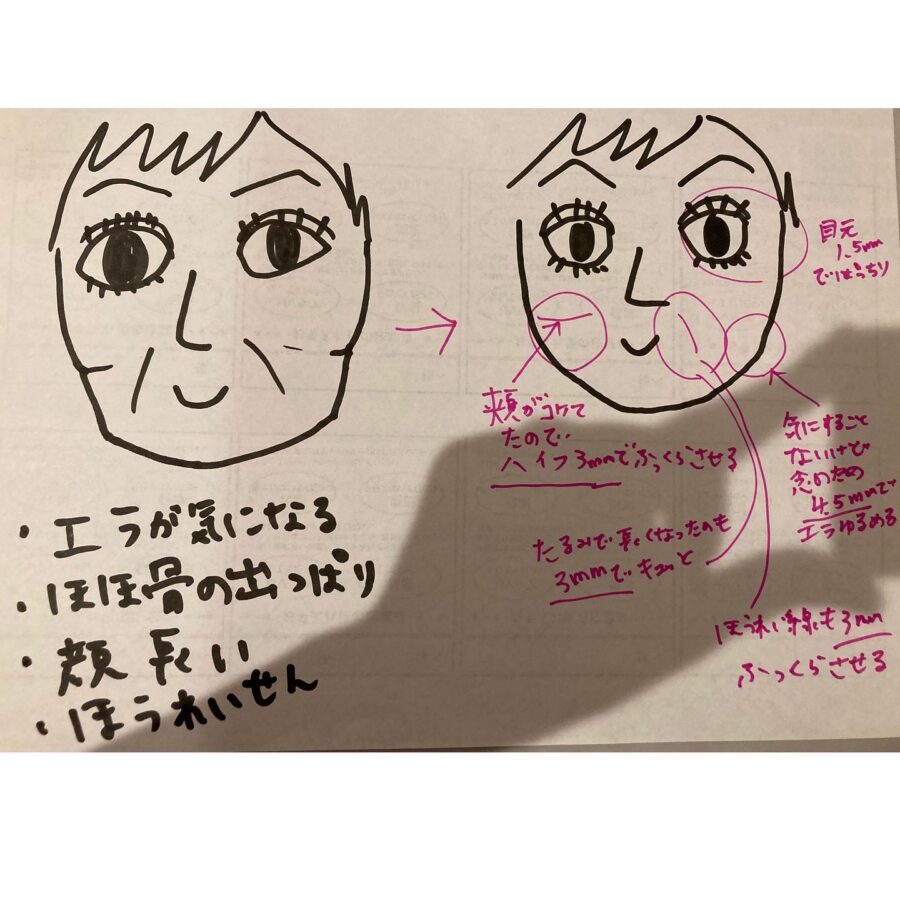 ・エラが気になる
・ほほ骨の出っぱり
・頬長い
・ほうれいせん
目元
1.5mm
でぱっちり
頬がコケて
たので、
ハイフ3mmでふっくらさせる
気にすること
ないけど
念のため
4.5mmで
エラゆるめる
たるみで長くなったのも
3mmでキュッと
ほうれい線も3mm
ふっくらさせる